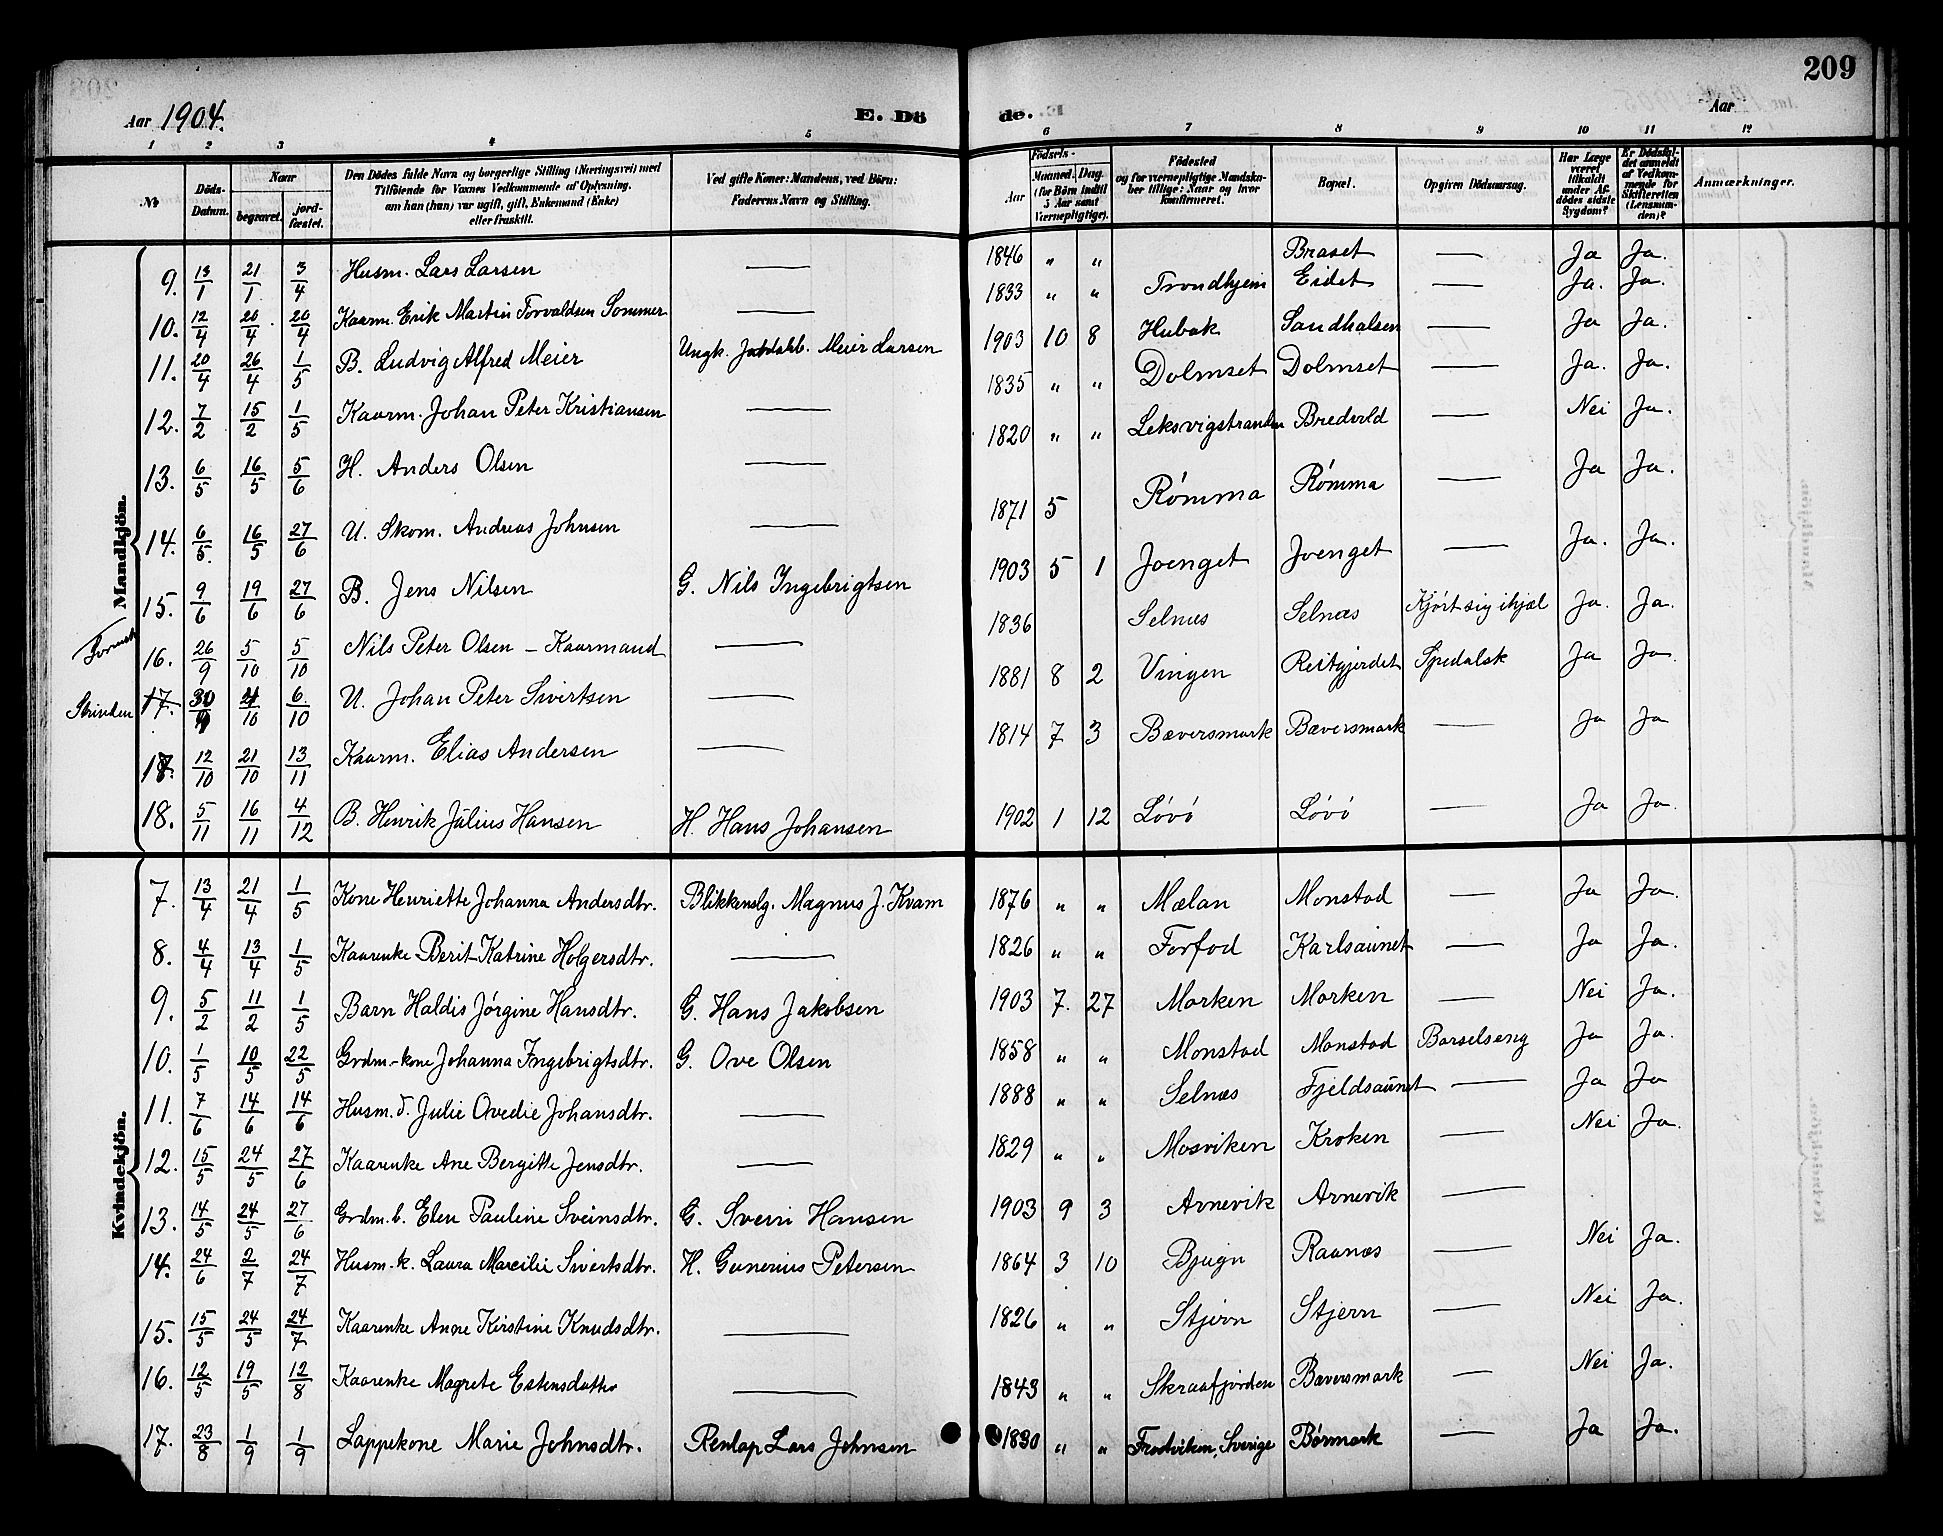 209
Aar 1904.
E. Dö de.
Aar
1 2 3 4 5 6 7 8 9 10 11 12
No
Döds-Datum.
Naar
begravet.
jord-fæstet.
Den Dödes fulde Navn og borgerlige Stilling (Næringsvei) med Tilföiende for Voxnes Vedkommende af Oplysning, om han (hun) var ugift, gift, Enkemand (Enke) eller fraskilt.
Ved gifte Koner: Mandens, ved Börn: Faderens Navn og Stilling.
Födsels-
Aar
Maaned. Dag.
(for Börn indtil 5 Aar samt Værnepligtige).
Födested
og for værnepligtige Mandskaber tillige: Naar og hvor konfirmeret.
Bopæl.
Opgiven Dödsaarsag.
Har Læge været tilkaldt under Afdödes sidste Sygdom?
Er Dödsfaldet anmeldt af Vedkommende for Skifteretten (Lensmanden)?
Anmærkninger.
Mandkjön.
9. 13/1 21/1 3/4 Husm. Lars Larsen — 1846 " " Braset — Ja Ja.
10. 12/4 20/4 20/4 Kaarm. Erik Martin Torvaldsen Sommer — 1833 " " Trondhjem Eidet — Ja. Ja.
11. 20/4 26/4 1/5 B. Ludvig Alfred Meier Ungk. Meier Larsen 1903 10 8 Hubak Sandhalsen — Ja Ja.
12. 7/2 15/2 1/5 Kaarm. Johan Peter Kristiansen — 1835 " " Dolmset Dolmset — Ja. Ja.
13. 6/5 16/5 5/6 H. Anders Olsen — 1820 " " Leksvigstranden Bredvold — Nei Ja.
14. 6/5 16/5 27/6 U. Skom. Andreas Johnsen — 1871 5 Rómma Rómma — Ja Ja.
15. 9/6 19/6 27/6 B. Jens Nilsen G. Nils Ingebrigtsen 1903 5 1 Joenget Joenget — Ja. Ja.
16. 26/9 5/10 5/10 Nils Peter Olsen - Kaarmand — 1836 Selnæs Selnæs Kjórt sig ihjæl Ja. Ja.
Strinden 17. 30/9 4/10 6/10 U. Johan Peter Sivertsen — 1881 8 2 Vingen Reitgjerdet Spedalsk Ja Ja.
17. 12/10 21/10 13/11 Kaarm. Elias Andersen — 1814 7 3 Bæversmark Bæversmark — Ja Ja
18. 5/11 16/11 4/12 B. Henrik Julius Hansen H. Hans Johansen 1902 1 12 Lóvó Lóvó — Ja Ja.
Kvindekjön.
7. 13/4 21/4 1/5 Kone Henriette Johanna Andersdtr. Blikkenslg. Magnus J. Kvam 1876 " " Mælan Monstad — Ja Ja.
8. 4/4 13/4 1/5 Kaarenke Berit Katrine Holgersdtr. — 1826 " " Forfod Karlsaunet — Ja Ja.
9. 5/2 11/2 1/5 Barn Haldis Jórgine Hansdtr. G. Hans Jakobsen 1903 7. 27 Morken Morken — Nei Ja.
10. 1/5 10/5 22/5 Grdm.-kone Johanna Ingebrigtsdtr. G. Ove Olsen 1858 " " Monstad Monstad Barselseng Ja Ja.
11. 7/6 14/6 14/6 Husm. d. Julie Ovedie Johansdtr. — 1888 " " Selnæs Fjeldsaunet — Ja Ja
12. 15/5 24/5 27/6 Kaarenke Ane Bergitte Jensdtr. — 1829 " " Mosviken Kroken — Nei Ja.
13. 14/5 24/5 27/6 Grdm. b. Elen Pauline Sveinsdtr. G. Svein Hansen 1903 9 3 Arnevik Arnevik —
14. 24/6 2/7 24/7 Husm. k. Laura Marcilie Sivertsdtr. H. Gunerius Petersen 1864 3 10 Bjugn Raanæs — Nei Ja.
15. 15/5 24/5 24/7 Kaarenke Anne Kirstine Knudsdtr. — 1826 " " Stjern Stjern — Nei Ja.
16. 12/5 19/5 12/8 Kaarenke Magrete Estensdatter — 1843 " " Skraafjorden Bæversmark — Nei Ja.
17. 23/8 1/9 1/9 Lappekone Marie Johnsdtr. Renlap Lars Johnsen 1830 " " Frostviken, Sverige Bórmark — Ja Ja.